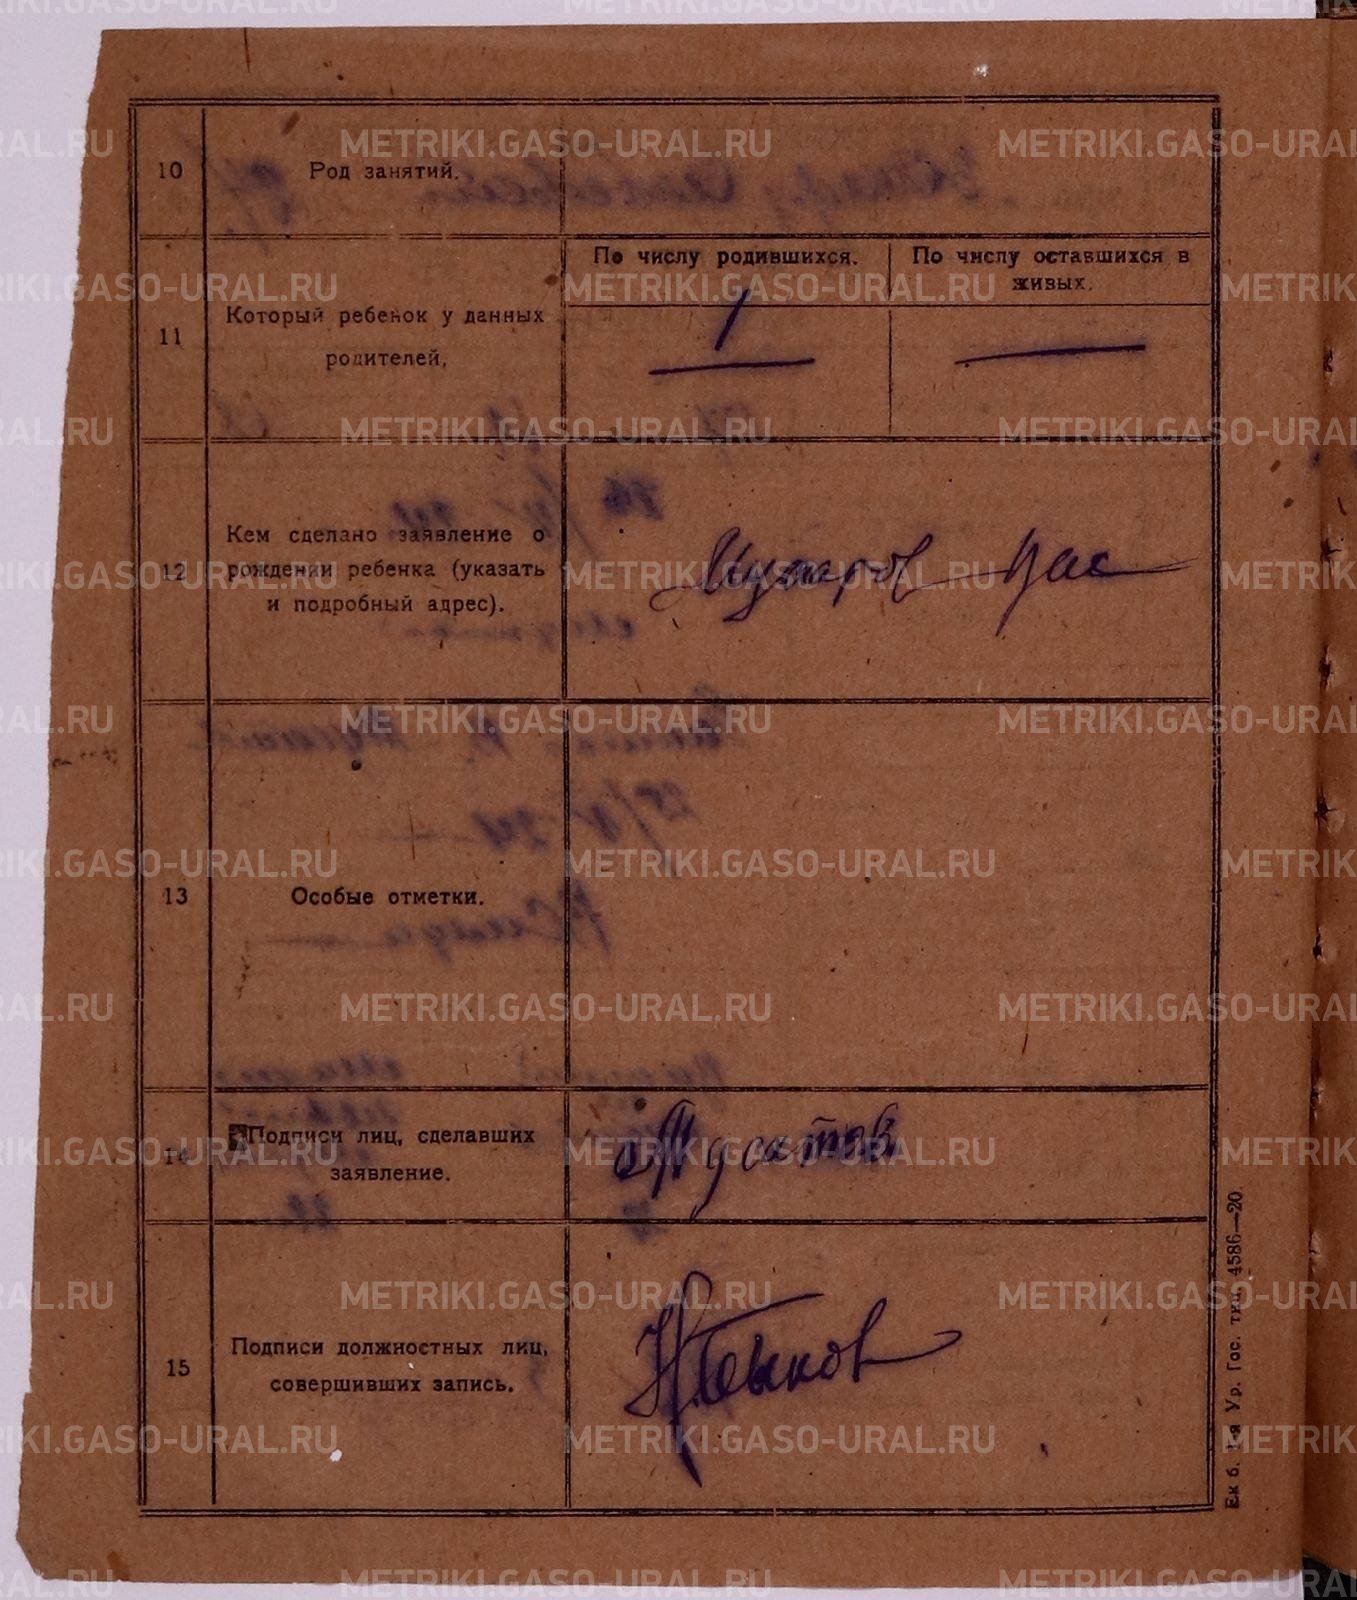 10
Род занятий.
По числу родившихся.
По числу оставшихся в
живых.
11
Который ребенок у данных
родителей,
1
12
Кем сделано заявление о
рождении ребенка (указать
и подробный адрес).
Вас
13
Особые отметки.
14
Подписи лиц, сделавших
заявление.
15
Подписи должностных лиц,
совершивших запись.
Ек б. 1-я Ур. Гос. тип. 4586—20
METRIKI.GASO-URAL.RU